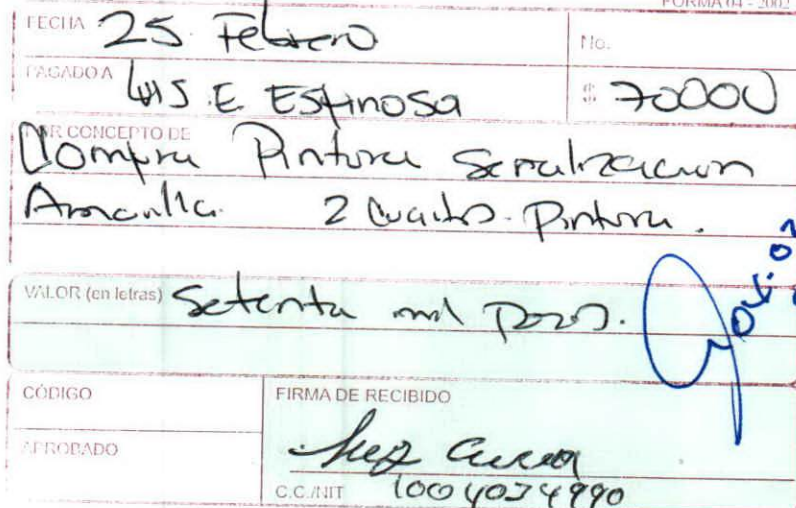 FORMA 04 - 2002
FECHA 25 Febrero
No.
PAGADO A LUIS E Espinosa
$ 70000
POR CONCEPTO DE
Compra Pintura Senalizacion
Amarilla. 2 Cuartos Pintura.
VALOR (en letras) Setenta mil pesos.
CÓDIGO
FIRMA DE RECIBIDO
APROBADO
C.C./NIT 1004034990